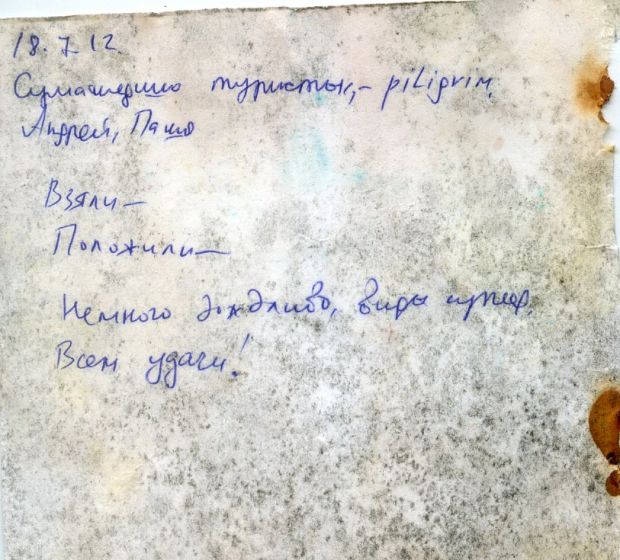 18.7.12
Сумашедшие туристы, - piligrim,
Андрей, Паша
Взяли —
Положили —
Немного дождливо, виды супер.
Всем удачи!